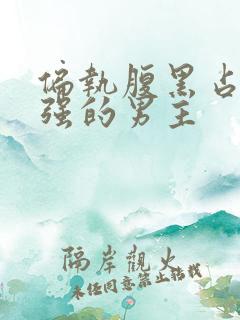 偏执腹黑占
强的男主
隔岸觀火
未经同意禁止转载